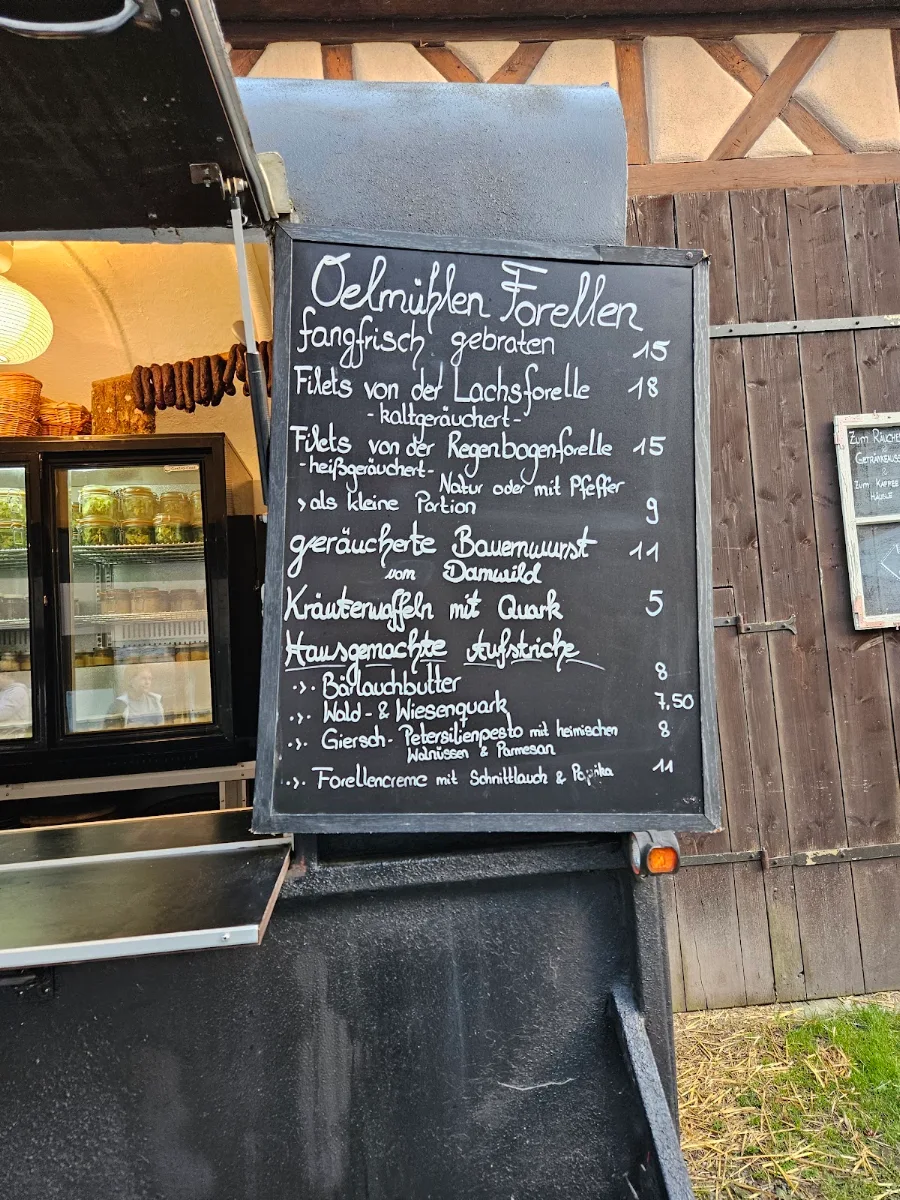 Oelmühlen Forellen
fangfrisch gebraten 15
Filets von der Lachsforelle 18
- kaltgeräuchert -
Filets von der Regenbogenforelle 15
- heißgeräuchert -
Natur oder mit Pfeffer
> als kleine Portion 9
geräucherte Bauernwurst 11
vom Damwild
Kräuterwaffeln mit Quark 5
Hausgemachte Aufstriche
·>· Bärlauchbutter 8
·>· Wald- & Wiesenquark 7,50
·>· Giersch- Petersilienpesto mit heimischen 8
Walnüssen & Parmesan
·>· Forellencreme mit Schnittlauch & Paprika 11
ZUM
&
ZUM KAFFEE
HÄUSLE